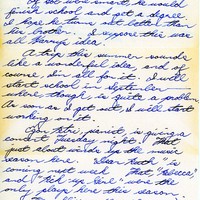 he would
finish school and get a degree
I hope he turns out better than
his brother. I suppose this was
all Harry's idea.
A trip this summer sounds
like a wonderful idea, and of
course I'm all for it. I will
start school in September
where though is quite a problem.
As soon as I get set, I will start
working on it.
pianist, is giving a
concert Tuesday night. That
just about winds up the music
season here. "Dear Ruth" is
coming next week. That, "Rebecca"
and "Kick up here" were the
only plays here this season.